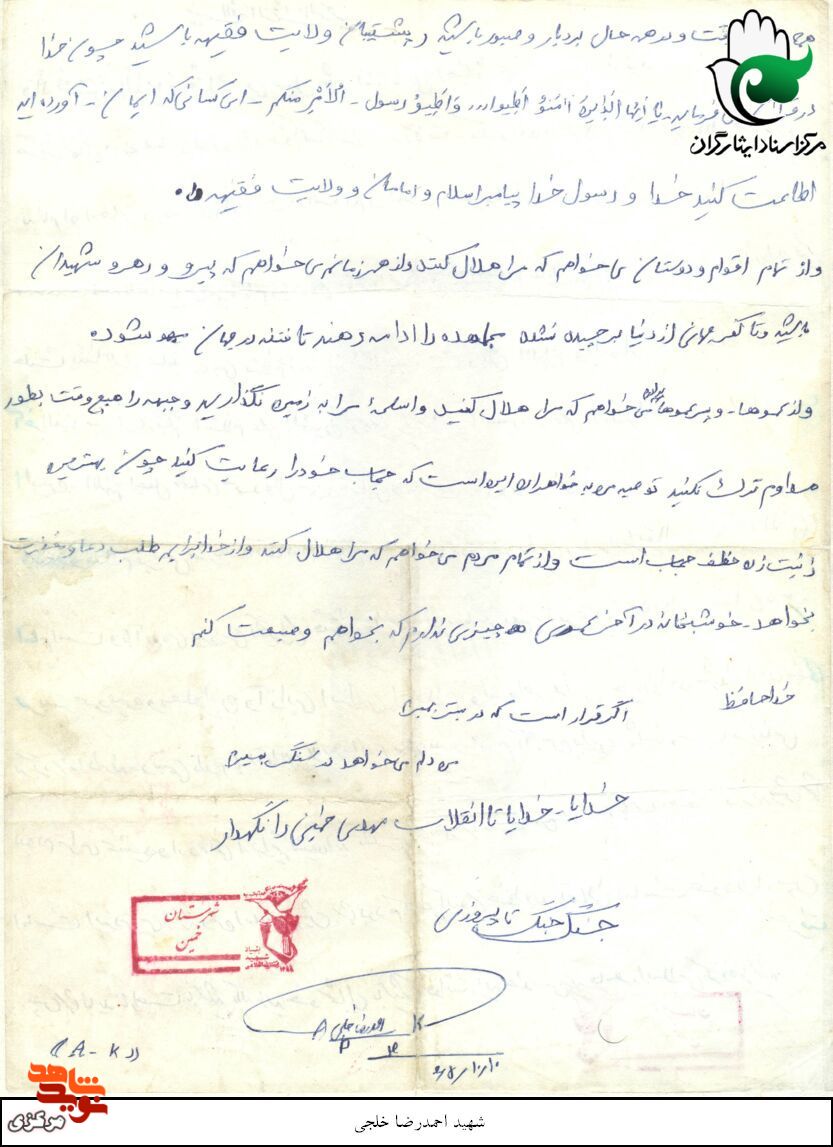 وقت و در همه حال بردبار و صبور باشید و پشتیبان ولایت فقیه باشید چون خدا
مرکز اسناد ایثارگران
در می فرماید یا ایها الذین امنو اطیوا... و اطیو رسول - الامر منکم - ای کسانی که ایمان - آورده اید
اطاعت کنید خدا و رسول خدا پیامبر اسلام و امامان و ولایت فقیهه را.
و از تمام اقوام و دوستان می خواهم که مرا هلال کنند و از می خواهم که پیرو و رهرو شهیدان
باشید و تا کفر جهانی از دنیا برچیده نشده مجاهده را ادامه دهند تا فتنه در جهان شوده
و از عموها - و پسر عموهایم می خواهم که مرا هلال کنید و اسلحهٔ مرا به زمین نگذارین و جبهه را هیچ وقت بطور
مداوم ترک نکنید توصیه من به خواهران این است که حجاب خود را رعایت کنید چون بهترین
زینت زن حفظ حجاب است و از تمام مردم می خواهم که مرا هلال کنند و از خدا برایم طلب دعای مغفرت
بخواهد - خوشبختانه در آخر چیزی ندارم که بخواهم وصیت کنم
خداحافظ
اگر قرار است که در بستر بمیرم
من دلم می خواهد در سنگر بمیرم
خدایا - خدایا تا انقلاب مهدی خمینی را نگهدار
جنگ جنگ تا پیروزی
شهرستان
خمین
بنیاد
شهید
احمدرضا خلجی
A K
(A-K))
نوید شاهد
مرکزی
شهید احمدرضا خلجی